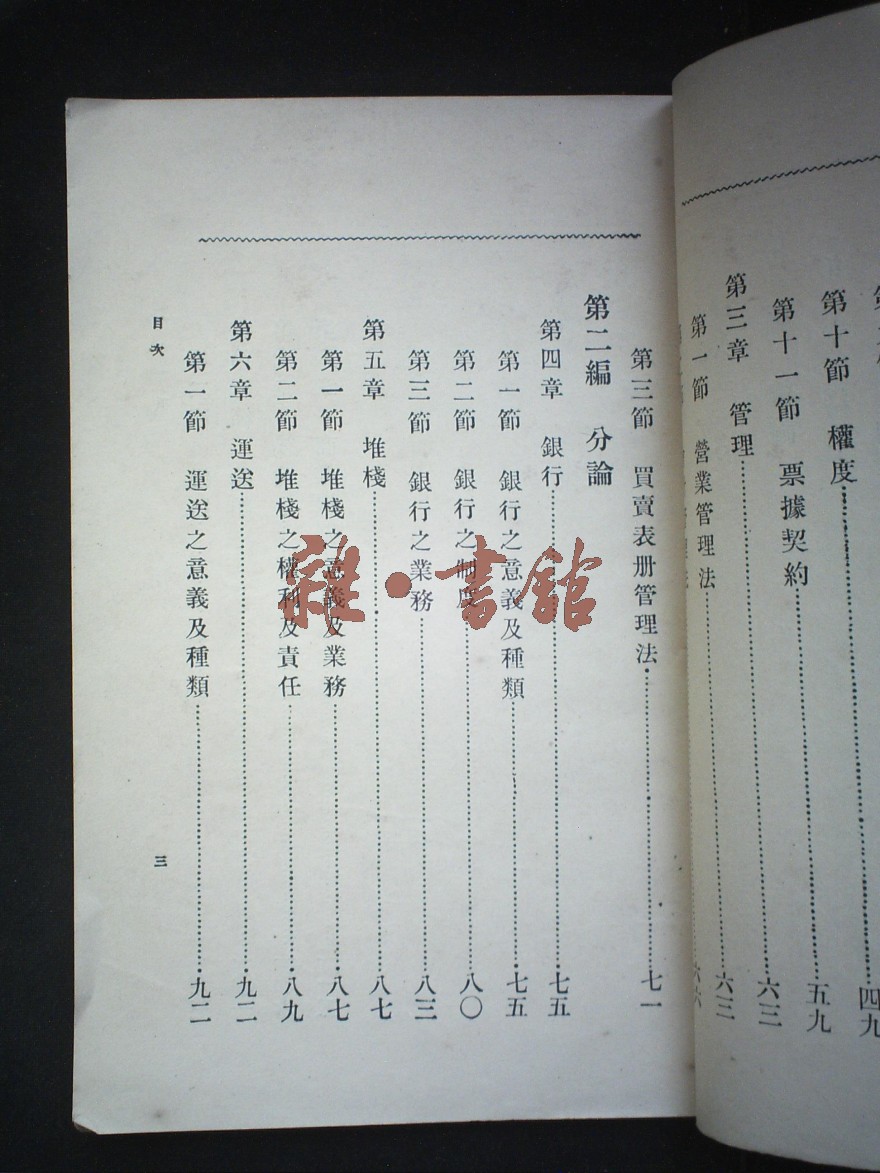 第十節　權度⋯⋯四九
第十一節　票據契約⋯⋯五九
第三章　管理⋯⋯六三
第一節　營業管理法⋯⋯六三
第三節　買賣表册管理法⋯⋯七一
第二編　分論
第四章　銀行⋯⋯七五
第一節　銀行之意義及種類⋯⋯七五
第二節　銀行之制度⋯⋯八〇
第三節　銀行之業務⋯⋯八三
第五章　堆棧⋯⋯八七
第一節　堆棧之意義及業務⋯⋯八七
第二節　堆棧之權利及責任⋯⋯八九
第六章　運送⋯⋯九二
第一節　運送之意義及種類⋯⋯九二
目次
三
雜·書館